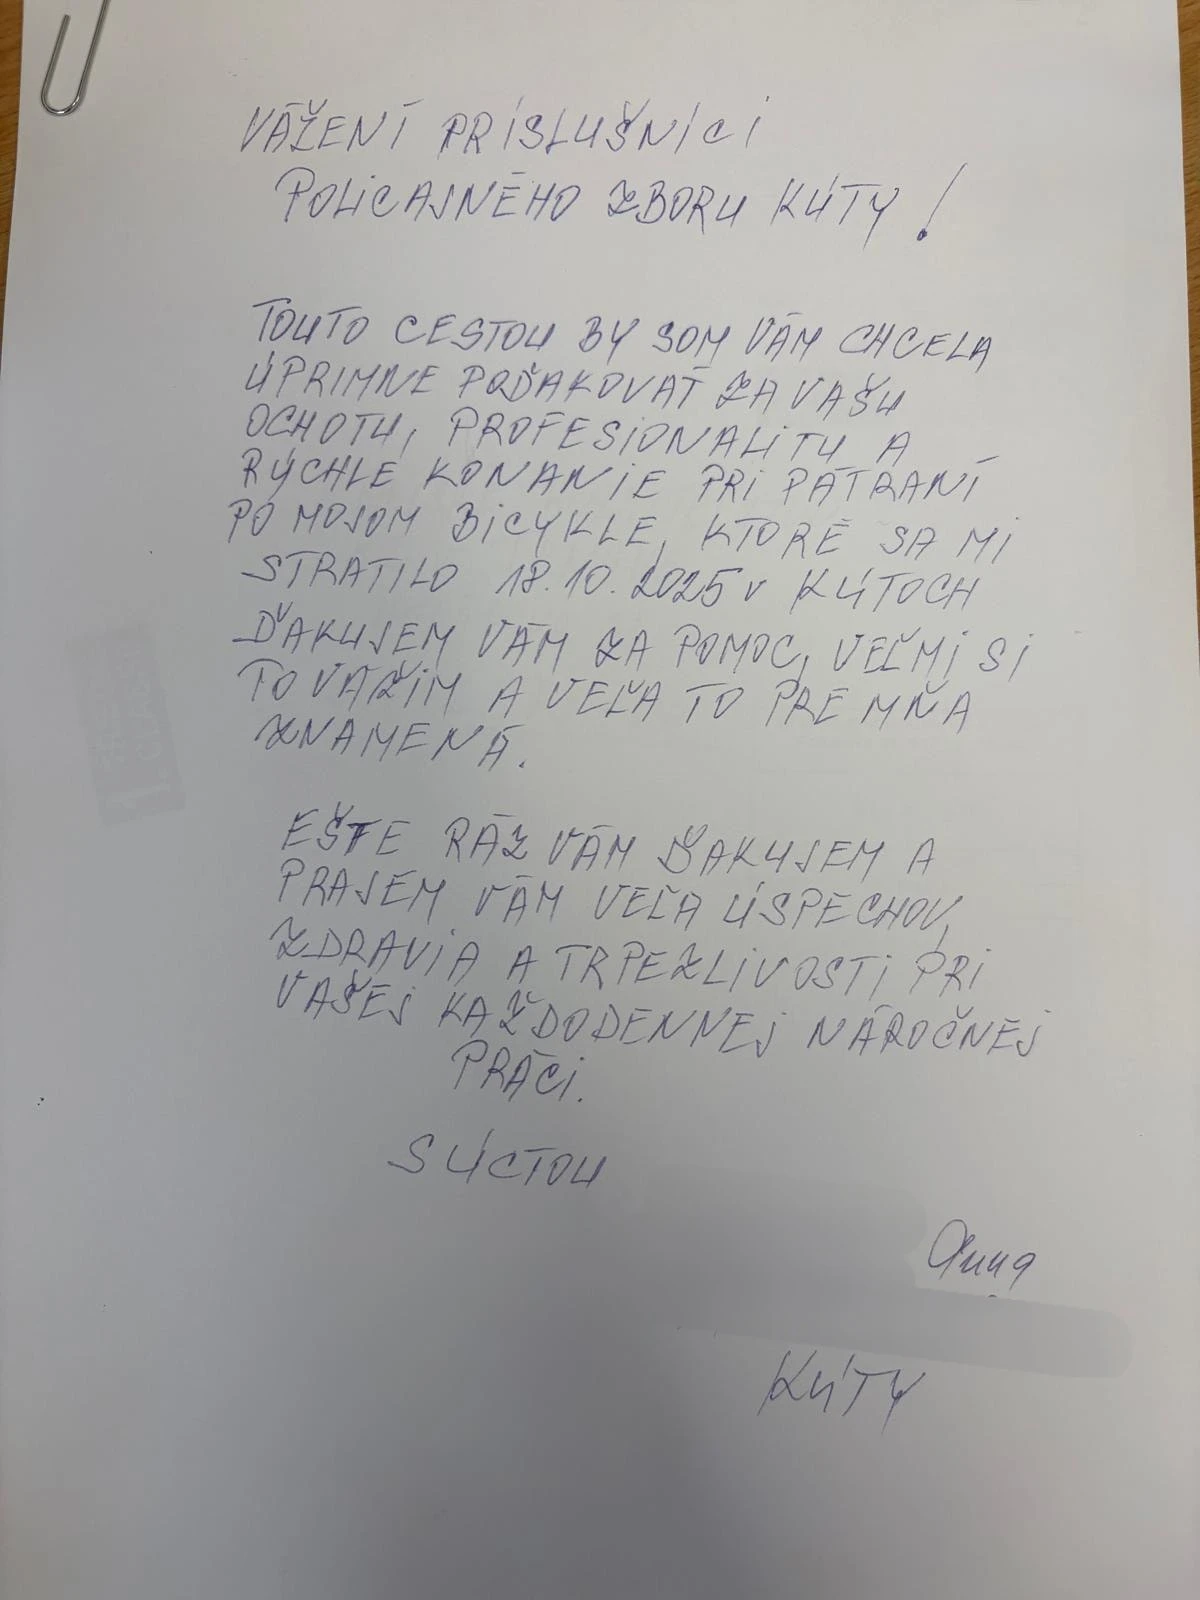 VÁŽENÍ PRÍSLUŠNÍCI
POLICAJNÉHO ZBORU KÚTY!
TOUTO CESTOU BY SOM VÁM CHCELA
ÚPRIMNE POĎAKOVAŤ ZA VAŠU
OCHOTU, PROFESIONALITU A
RÝCHLE KONANIE PRI PÁTRANÍ
PO MOJOM BICYKLE, KTORÉ SA MI
STRATILO 18.10.2025 v KÚTOCH
ĎAKUJEM VÁM ZA POMOC, VEĽMI SI
TO VÁŽIM A VEĽA TO PRE MŇA
ZNAMENÁ.
EŠTE RÁZ VÁM ĎAKUJEM A
PRAJEM VÁM VEĽA ÚSPECHOV,
ZDRAVIA A TRPEZLIVOSTI PRI
VAŠEJ KAŽDODENNEJ NÁROČNEJ
PRÁCI.
S ÚCTOU
Anna
KÚTY